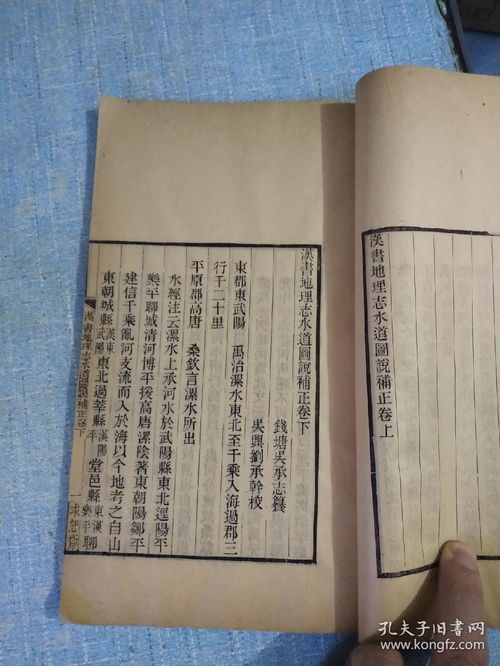 漢書地理志水道圖說補正卷上
漢書地理志水道圖說補正卷下
錢塘吳承志篹
吳興劉承幹校
東郡東武陽　禹治漯水東北至千乘入海過郡三
行千二十里
平原郡高唐　桑欽言漯水所出
水經注云漯水上承河水於武陽縣東北逕陽平
樂平聊城清河博平援高唐漯陰著東朝陽鄒平
建信千乘亂河支流而入於海以今地考之自山
東朝城縣漢東武陽東北過莘縣漢陽平堂邑縣東漢樂平聊
漢書地理志水道圖說補正卷下
一
求恕齋
孔夫子旧书网
www.kongfz.com